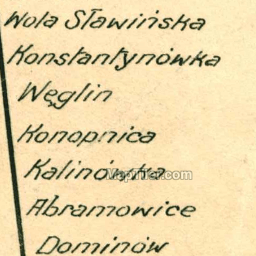 Wola Sławińska
Konstantynówka
Węglin
Konopnica
Kalinówka
MapTiler.com
Abramowice
Dominów